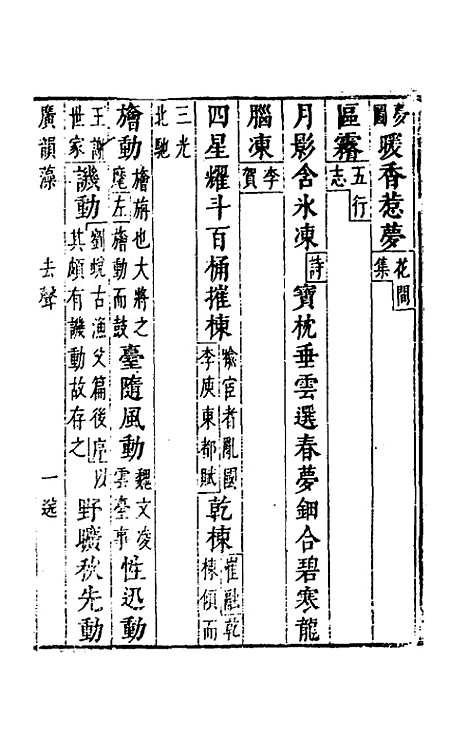 夢圖暖香惹夢花間集
區霿五行志
月影含氷凍詩寶枕垂雲選春夢鈿合碧寒龍
腦凍李賀
四星耀斗百桶摧棟喻宦者亂國李庾東都賦乾棟崔融乾棟傾而
三光北馳
旝動旝旃也大將之麾左旝動而鼓臺隨風動魏文凌雲臺事性迅動
王謝世家譏動劉蛻古漁父篇後序以其頗有譏動故存之野曠秋先動
廣韻藻 去聲 一送